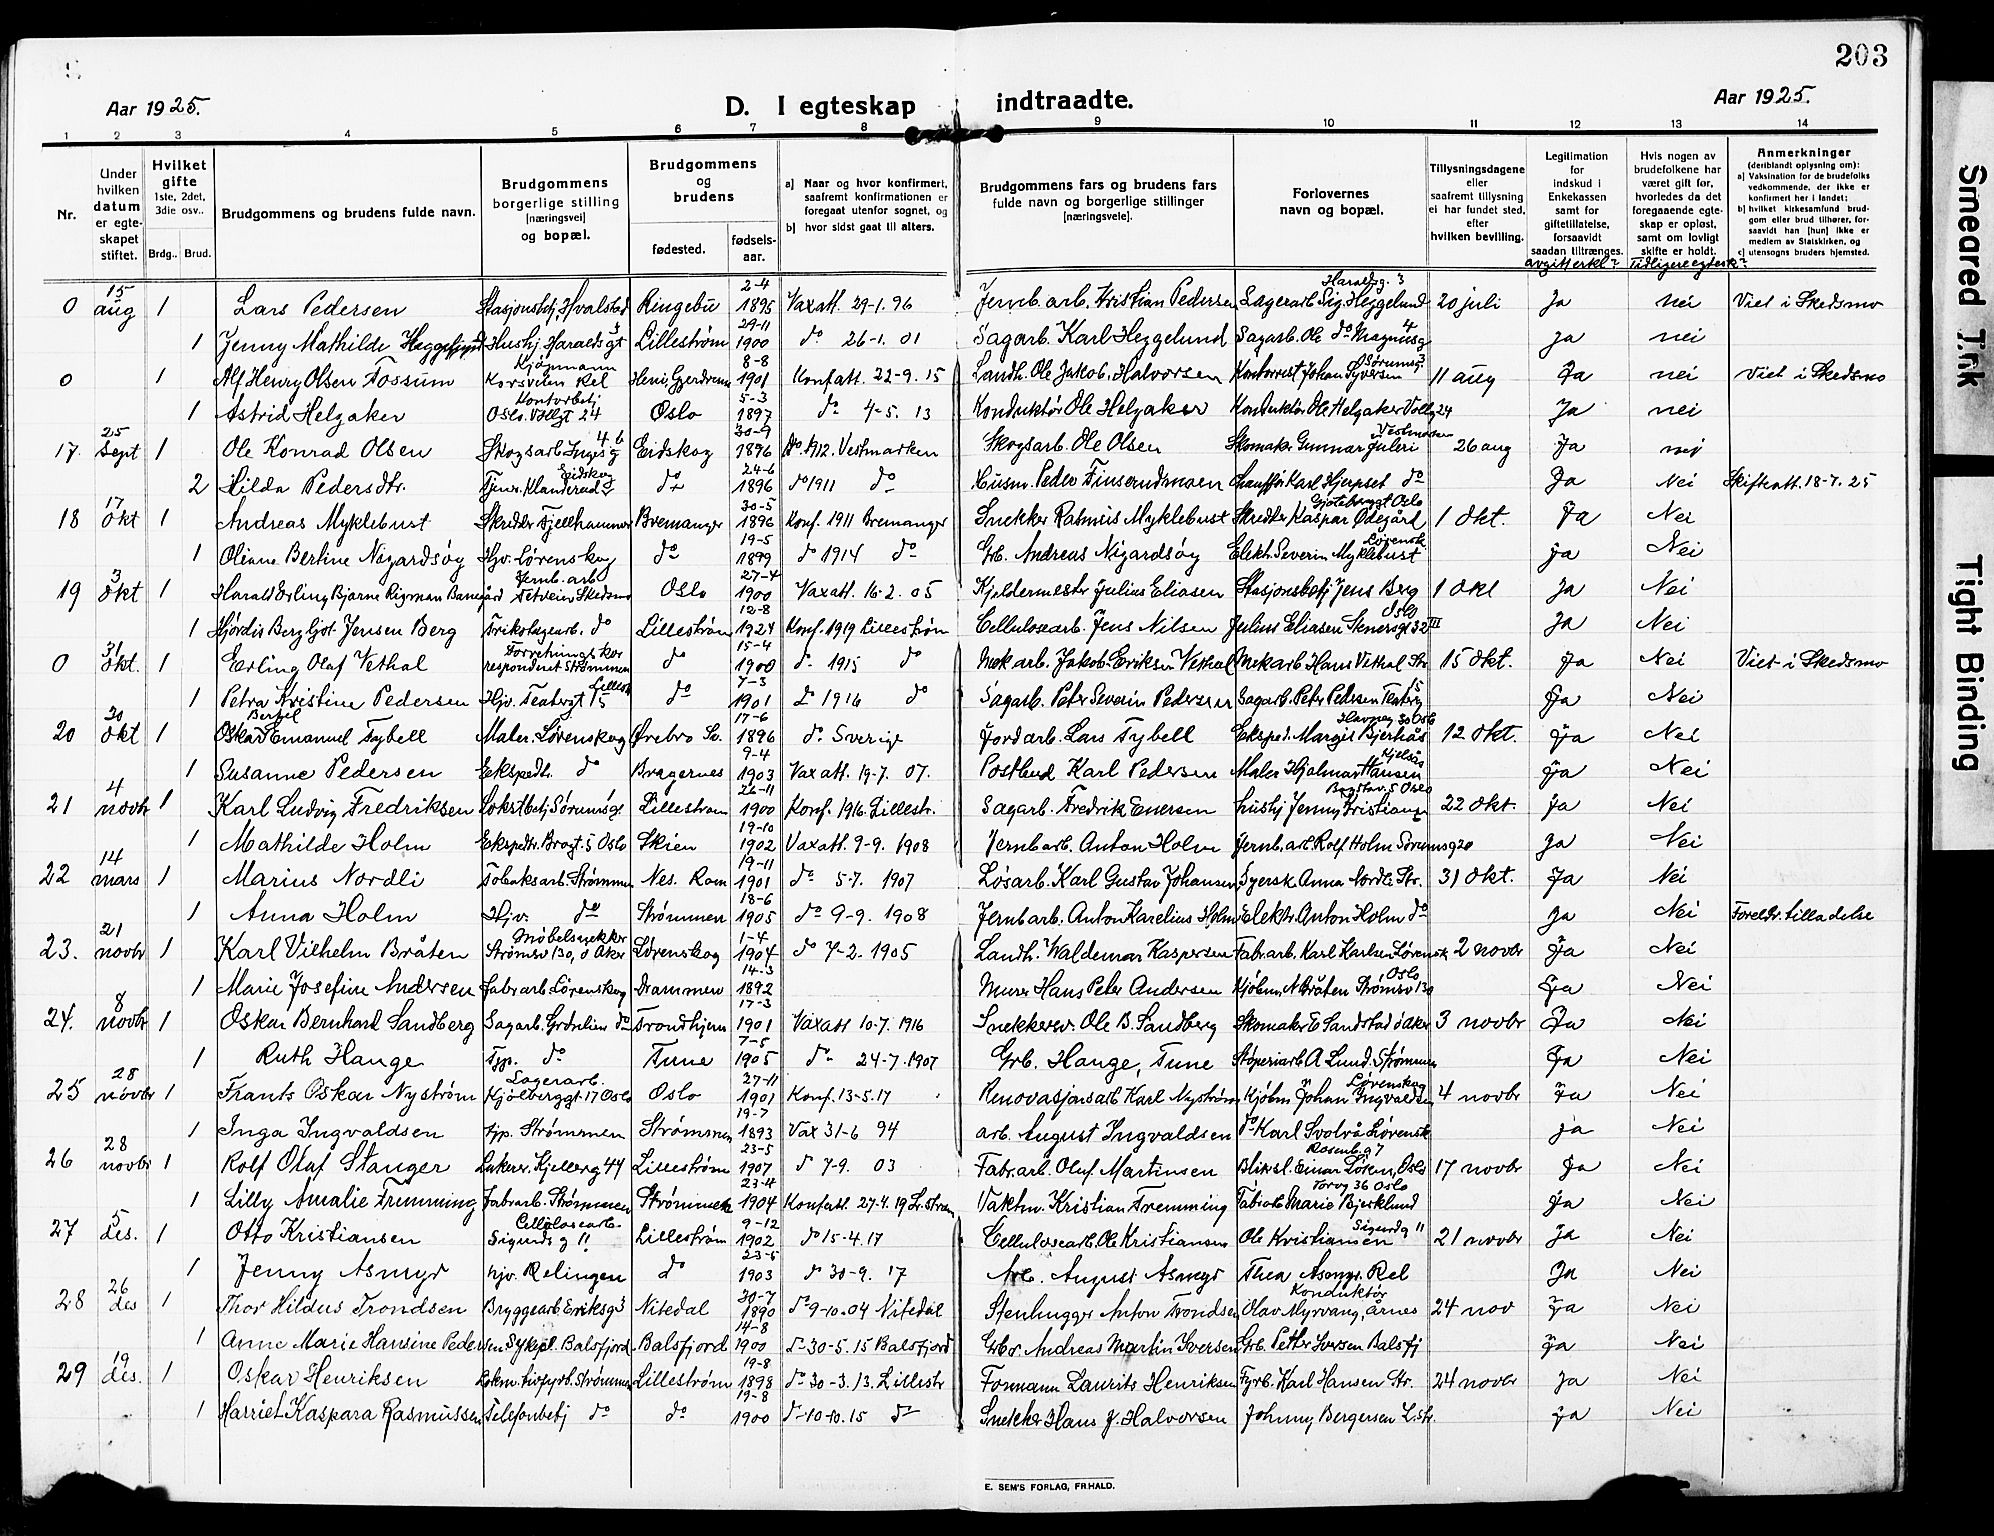 203
Aar 1925.
D. I egteskap indtraadte.
Aar 1925.
1 2 3 4 5 6 7 8 9 10 11 12 13 14
Nr.
Under hvilken datum er egteskapet stiftet.
Hvilket gifte 1ste, 2det, 3die osv..
Brdg.. Brud.
Brudgommens og brudens fulde navn.
Brudgommens borgerlige stilling [næringsvei] og bopæl.
Brudgommens og brudens
fødested.
fødselsaar.
a] Naar og hvor konfirmert, saafremt konfirmationen er foregaat utenfor sognet, og
b] hvor sidst gaat til alters.
Brudgommens fars og brudens fars fulde navn og borgerlige stillinger [næringsveie].
Forlovernes navn og bopæl.
Tillysningsdagene eller saafremt tillysning ei har fundet sted, efter hvilken bevilling.
Legitimation for indskud i Enkekassen samt for giftetillatelse, forsaavidt saadan tiltrænges.
Hvis nogen av brudefolkene har været gift før, hvorledes da det foregaaende egteskap er opløst, samt om lovligt skifte er holdt.
Anmerkninger (deriblandt oplysning om):
a] Vaksination for de brudefolks vedkommende, der ikke er konfirmert her i landet;
b] hvilket kirkesamfund brudgom eller brud tilhører, forsaavidt han [hun] ikke er medlem av Statskirken, og
c] utensogns bruders hjemsted.
0 15 aug 1 Lars Pedersen Stasjonsbtj. Hvalstad Ringebu 2-4 1895 Vaxatt. 29-1. 96 Jernb. arb. Kristian Pedersen Lagerarb. Sig. Heggelund Haraldsg. 3 20 juli Ja nei Viet i Skedsmo
1 Jenny Mathilde Heggelund Hushj Haraldsgt 3 Lillestrøm 29-11 1900 do 26-1. 01 Sagarb. Karl Heggelund Sagarb. Ole do Magnusg 4 Ja nei
0 1 Alf Henry Olsen Fossum Kjøpmann 8-8 1901 Konfatt. 22-9. 15 Landh. Ole Jakob Halvorsen Kontorist Johan Syversen Sørumsg. 3 11 aug Ja nei Viet i Skedsmo
1 Astrid Helgaker Kontorbetj Oslo. Vollgt 24 Oslo 5-3 1897 do 4-5. 13 Konduktør Ole Helgaker Konduktør Ole Helgaker Vollg 24 Ja nei
17. 25 Sept 1 Ole Konrad Olsen Skogsarb. Eidskog 30-9 1896 do 1912. Vestmarken Skogsarb. Ole Olsen Skomaker Gunnar Juleri Vestmarken 26 aug Ja nei
2 Hilda Pedersdtr. Eidskog do 24-6 1896 do 1911 do Husm. Peder Finsrudsmoen Chauffør Karl Hjerpset do Ja Nei Skifteatt. 18-7. 25
18 17 Okt 1 Andreas Myklebust Skredder Fjellhammer Bremanger 30-5 1896 Konf. 1911 Bremanger Snekker Rasmus Myklebust Skredder Kaspar Ødegård Oslo 1 Okt. Ja Nei
1 Oliane Bertine Nigardsøy Hjv. Lørenskog do 19-5 1899 do 1914 do Grb. Andreas Nigardsøy Elektr. Severin Myklebust Lørensk. Ja Nei
19 3 Okt 1 Harald Erling Bjarne Rigman Bangård Jernb. arb. Tetvein Skedsmo Oslo 27-4 1900 Vaxatt. 16-2. 05 Kjeldermester Julius Eliasen Stasjonsbetj Jens Berg 1 Okt Ja Nei
1 Hjørdis Bergljot Jensen Berg do Lillestrøm 12-8 1924 Konf. 1919 Lillestrøm Cellulosearb. Jens Nilsen Julius Eliasen Stenersgt 32 III Oslo Ja Nei
0 31 Okt. 1 Erling Olaf Vethal Forretningskorrespondent Strømmen do 15-4 1900 do 1915 do Mek arb. Jakob Eriksen Vethal Mekarb Hans Vethal Str 15 Okt. Ja Nei Viet i Skedsmo
1 Petra Kristine Pedersen Hjv. Teatergt 15 Lillestr do 7-3 1901 do 1916 do Sagarb. Peter Severin Pedersen Sagarb. Peter Pedersen Teaterg 15 Ja Nei
20 30 Okt 1 Oskar Bertel Emanuel Tybell Maler. Lørenskog Ørebro Sv. 17-6 1896 do Sverige Jordarb. Lars Tybell Eksped. Margit Bjerkås 12 Okt. Ja Nei
1 Susanne Pedersen Ekspedtr. do Bragernes 9-4 1903 Vaxatt. 19-7. 07. Postbud Karl Pedersen Maler Hjalmar Hansen Kjelsås Ja Nei
21 4 novbr 1 Karl Ludvig Fredriksen Lokstbetj Sørumsg. Lillestrøm 26-11 1900 Konf. 1916. Lillestr. Sagarb. Fredrik Enersen Hushj Jenny Kristiansen Oslo 22 Okt. Ja Nei
1 Mathilde Holm Ekspedtr. Brogt. 5 Oslo Skien 19-10 1902 Vaxatt. 9-9. 1908 Jernb arb. Anton Holm Jernb. arb Rolf Holm Sørumsg 20 Ja Nei
22 14 mars 1 Marius Nordli Tobaksarb. Strømmen Nes. Rom 19-11 1901 do 5-7. 1907 Løsarb. Karl Gustav Johansen Syersk. Anna Nordli Str. 31 Okt. Ja Nei
1 Anna Holm Hjv. do Strømmen 18-6 1905 do 9-9. 1908 Jernb arb. Anton Karelius Holm Elektr. Anton Holm do Ja Nei Foreldr. tilladelse
23. 21 novbr 1 Karl Vilhelm Bråten Møbelsnekker Strømsv 130, Ø Aker Lørenskog 1-4 1904 do 7-2. 1905 Landh. Waldemar Kaspersen Fabr.arb. Karl Karlsen Lørensk 2 novbr Ja Nei
1 Marie Josefine Andersen Fabr.arb. Lørenskog Drammen 14-3 1892 Murer Hans Peter Andersen Kjøbm. N Bråten Strømsv 130 Oslo Ja Nei
24. 8 novbr 1 Oskar Bernhard Sandberg Sagarb. Grønlien do Trondhjem 17-3 1901 Vaxatt 10-7. 1916 Snekkersv. Ole B. Sandberg Skomaker E Sandstad Ø Aker 3 novbr Ja Nei
1 Ruth Hauge Tjp. do Tune 7-5 1905 do 24-7. 1907 Grb. Hauge, Tune Støperiarb A Lund. Strømmen Ja Nei
25 28 novbr 1 Frants Oskar Nystrøm Lagerarb. Kjølberggt. 17 Oslo Oslo 27-11 1901 Konf. 13-5. 17 Renovasjonsarb Karl Nystrøm Kjøbm Johan Ingvaldsen Lørenskog 4 novbr Ja Nei
1 Inga Ingvaldsen Tjp. Strømmen Strømmen 19-7 1893 Vax 31-6 94 arb. August Ingvaldsen do Karl Svolvå Lørensk Ja Nei
26 28 novbr 1 Rolf Olaf Stanger Kjellerg 44 Lillestrøm 23-5 1907 do 7-9. 03 Fabr.arb. Oluf Martinsen Blikksl. Einar Løren, Oslo 17 novbr Ja Nei
1 Lilly Amalie Fremming Fabr.arb. Strømmen Strømmen 23-4 1904 Konfatt. 27-4. 19 L.strøm Vaktm. Kristian Fremming Marie Bjerklund Torvg 36 Oslo Ja Nei
27 5 des. 1 Otto Kristiansen Cellulosearb. Sigurdsg 11 Lillestrøm 9-12 1902 do 15-4. 17 Cellulosearb. Ole Kristiansen Ole Kristiansen Sigurdsg 11 21 novbr Ja Nei
1 Jenny Asmyr hjv. Relingen do 23-5 1903 do 30-9. 17 Arb. August Asmyr Thea Asmyr. Rel Ja Nei
28 26 des 1 Thor Hildus Trondsen Bryggearb Eriksg 3 Nitedal 30-7 1890 do 9-10. 04 Nitedal Stenhugger Anton Trondsen Konduktør Olav Myrvang, Årnes 24 nov Ja Nei
1 Anne Marie Hansine Pedersen Sykepl. Balsfjord Balsfjord 14-8 1900 do 30-5. 15 Balsfjord Grbr Andreas Martin Iversen Grb. Petter Iversen Balsfj Ja Nei
29 19 des. 1 Oskar Henriksen Strømmen Lillestrøm 19-8 1898 do 30-3. 13. Lillestr Formann Laurits Henriksen Fyrb. Karl Hansen Str. 24 novbr Ja Nei
1 Harriet Kaspara Rasmussen Telefonbetj do do 19-8 1900 do 10-10. 15 do Snekker Hans J. Halvorsen Johnny Bergersen L.str. Ja Nei
E. SEM'S FORLAG, FR.HALD.
Smeared Ink
Tight Binding